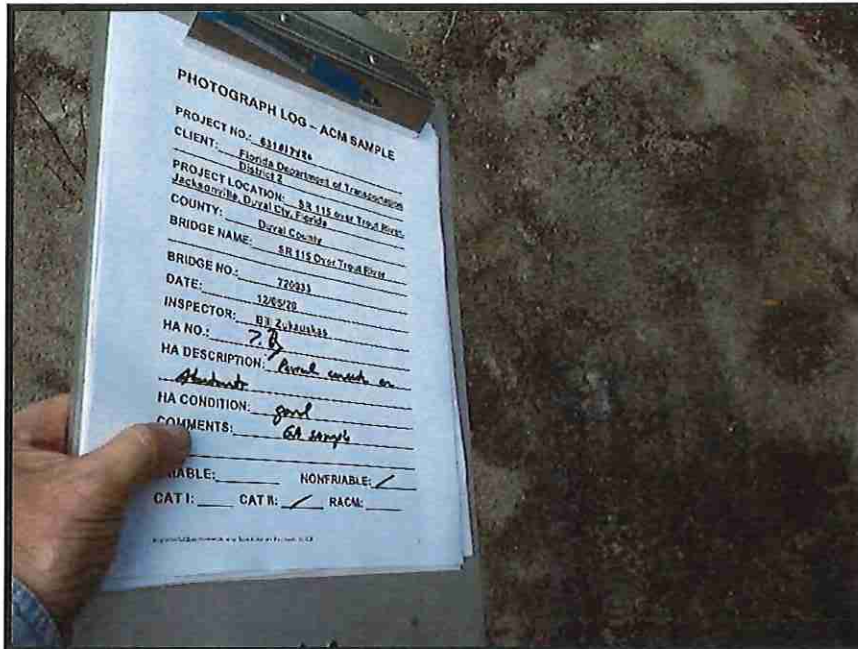 PHOTOGRAPH LOG – ACM SAMPLE
PROJECT NO.:
CLIENT: Florida Department of Transportation
District 2
PROJECT LOCATION: SR 115 over Trout River,
Jacksonville, Duval Cty, Florida
COUNTY: Duval County
BRIDGE NAME: SR 115 Over Trout River
BRIDGE NO.: 720033
DATE: 12/05/20
INSPECTOR: Bill Zukauskas
HA NO.: 7.
HA DESCRIPTION: on
Abutments
HA CONDITION: good
COMMENTS: sample
NONFRIABLE: /
CAT I: CAT II: / RACM: